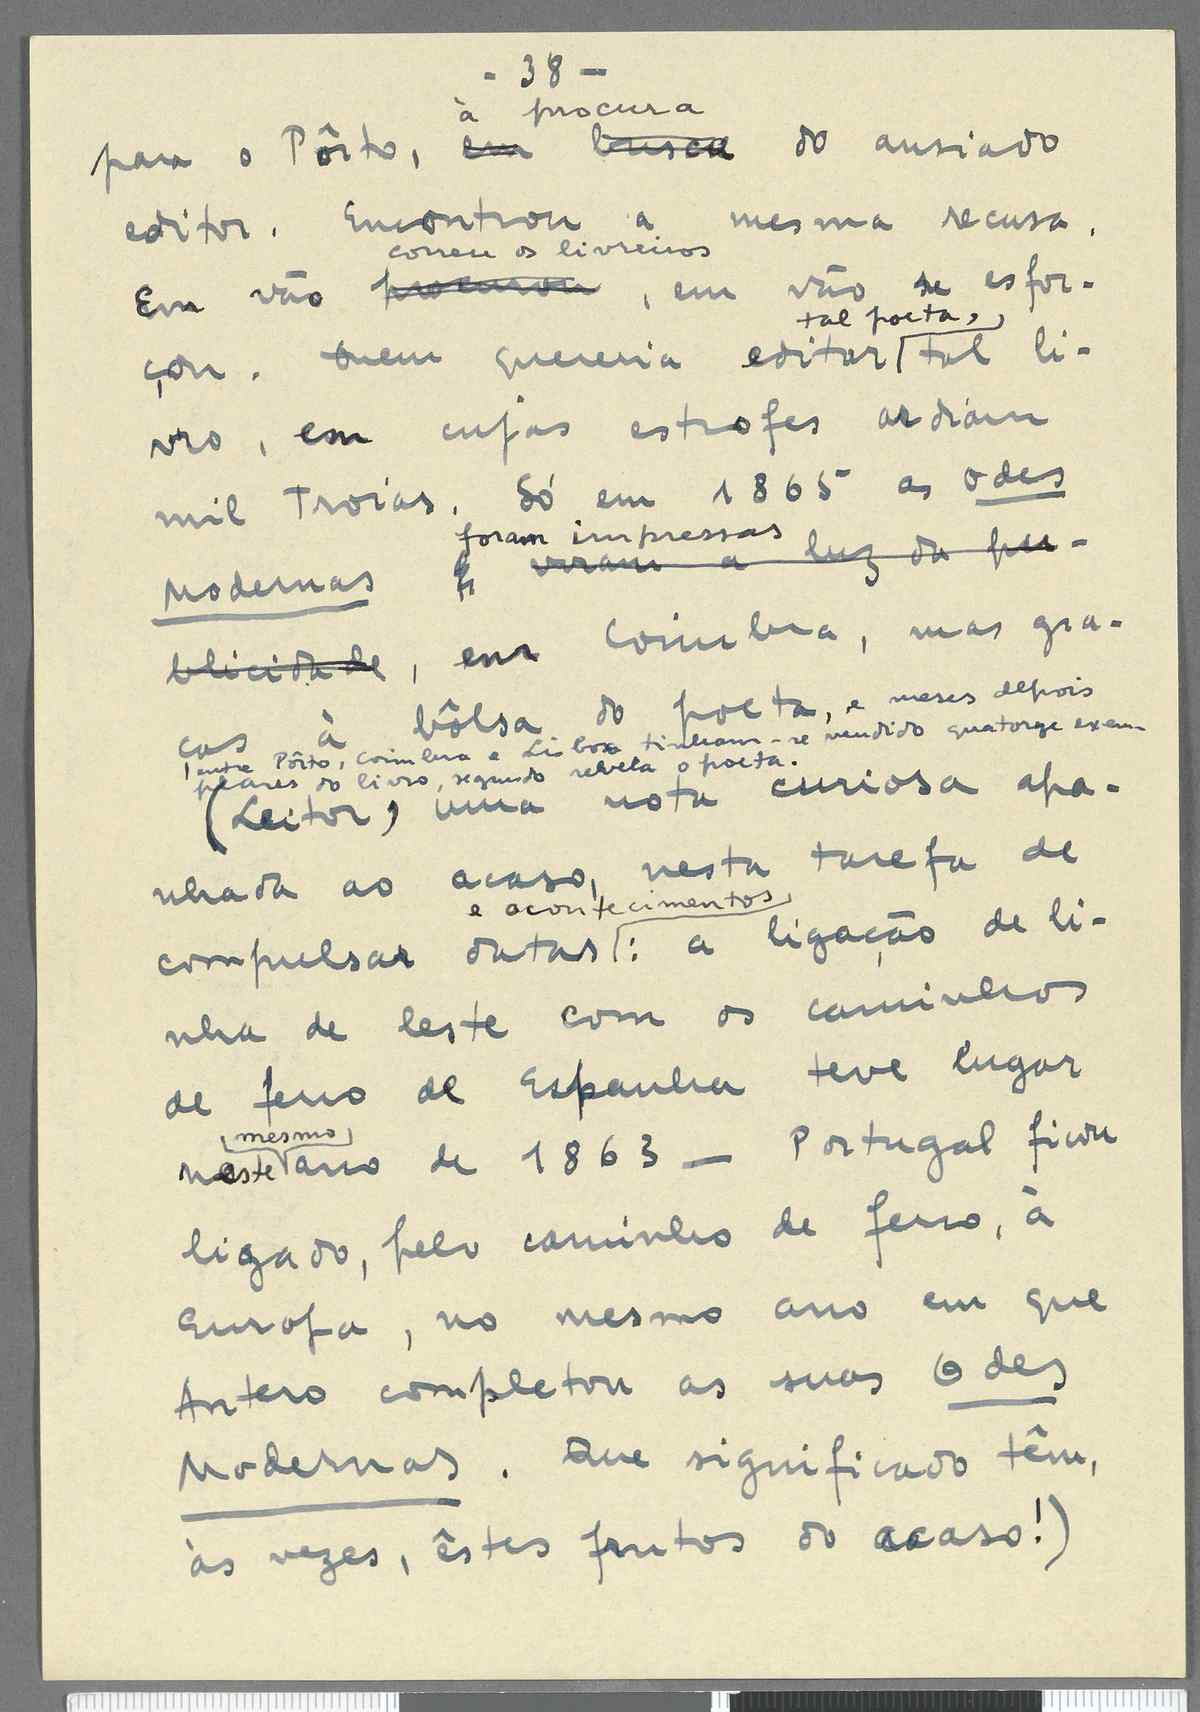 - 38 -
à procura
para o Pôrto, em busca do ansiado
editor. Encontrou a mesma recusa.
correu os livreiros
Em vão procurou, em vão se esfor-
tal poeta,
çou. Quem quereria editar tal li-
vro, em cujas estrofes ardiam
mil Troias. Só em 1865 as Odes
foram impressas
Modernas viram a luz da pu-
blicidade, em Coimbra, mas gra-
ças à bôlsa do poeta, e meses depois
entre Pôrto, Coimbra e Lisboa tinham-se vendido quatorze exem-
plares do livro, segundo revela o poeta.
(Leitor, uma nota curiosa apa-
nhada ao acaso, nesta tarefa de
e acontecimentos
compulsar datas: a ligação de li-
nha de leste com os caminhos
de ferro de Espanha teve lugar
mesmo
neste ano de 1863 — Portugal ficou
ligado, pelo caminho de ferro, à
Europa, no mesmo ano em que
Antero completou as suas Odes
Modernas. Que significado têm,
às vezes, êstes frutos do acaso!)